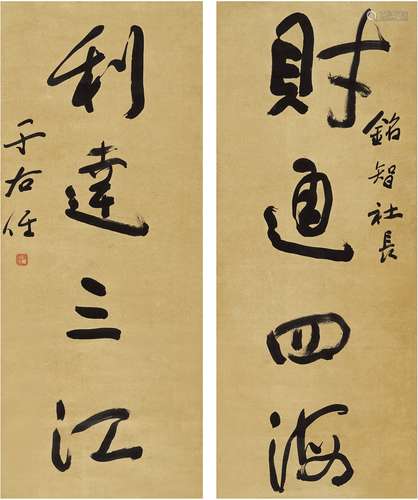 财通四海
銘智社長
利達三江
于右任